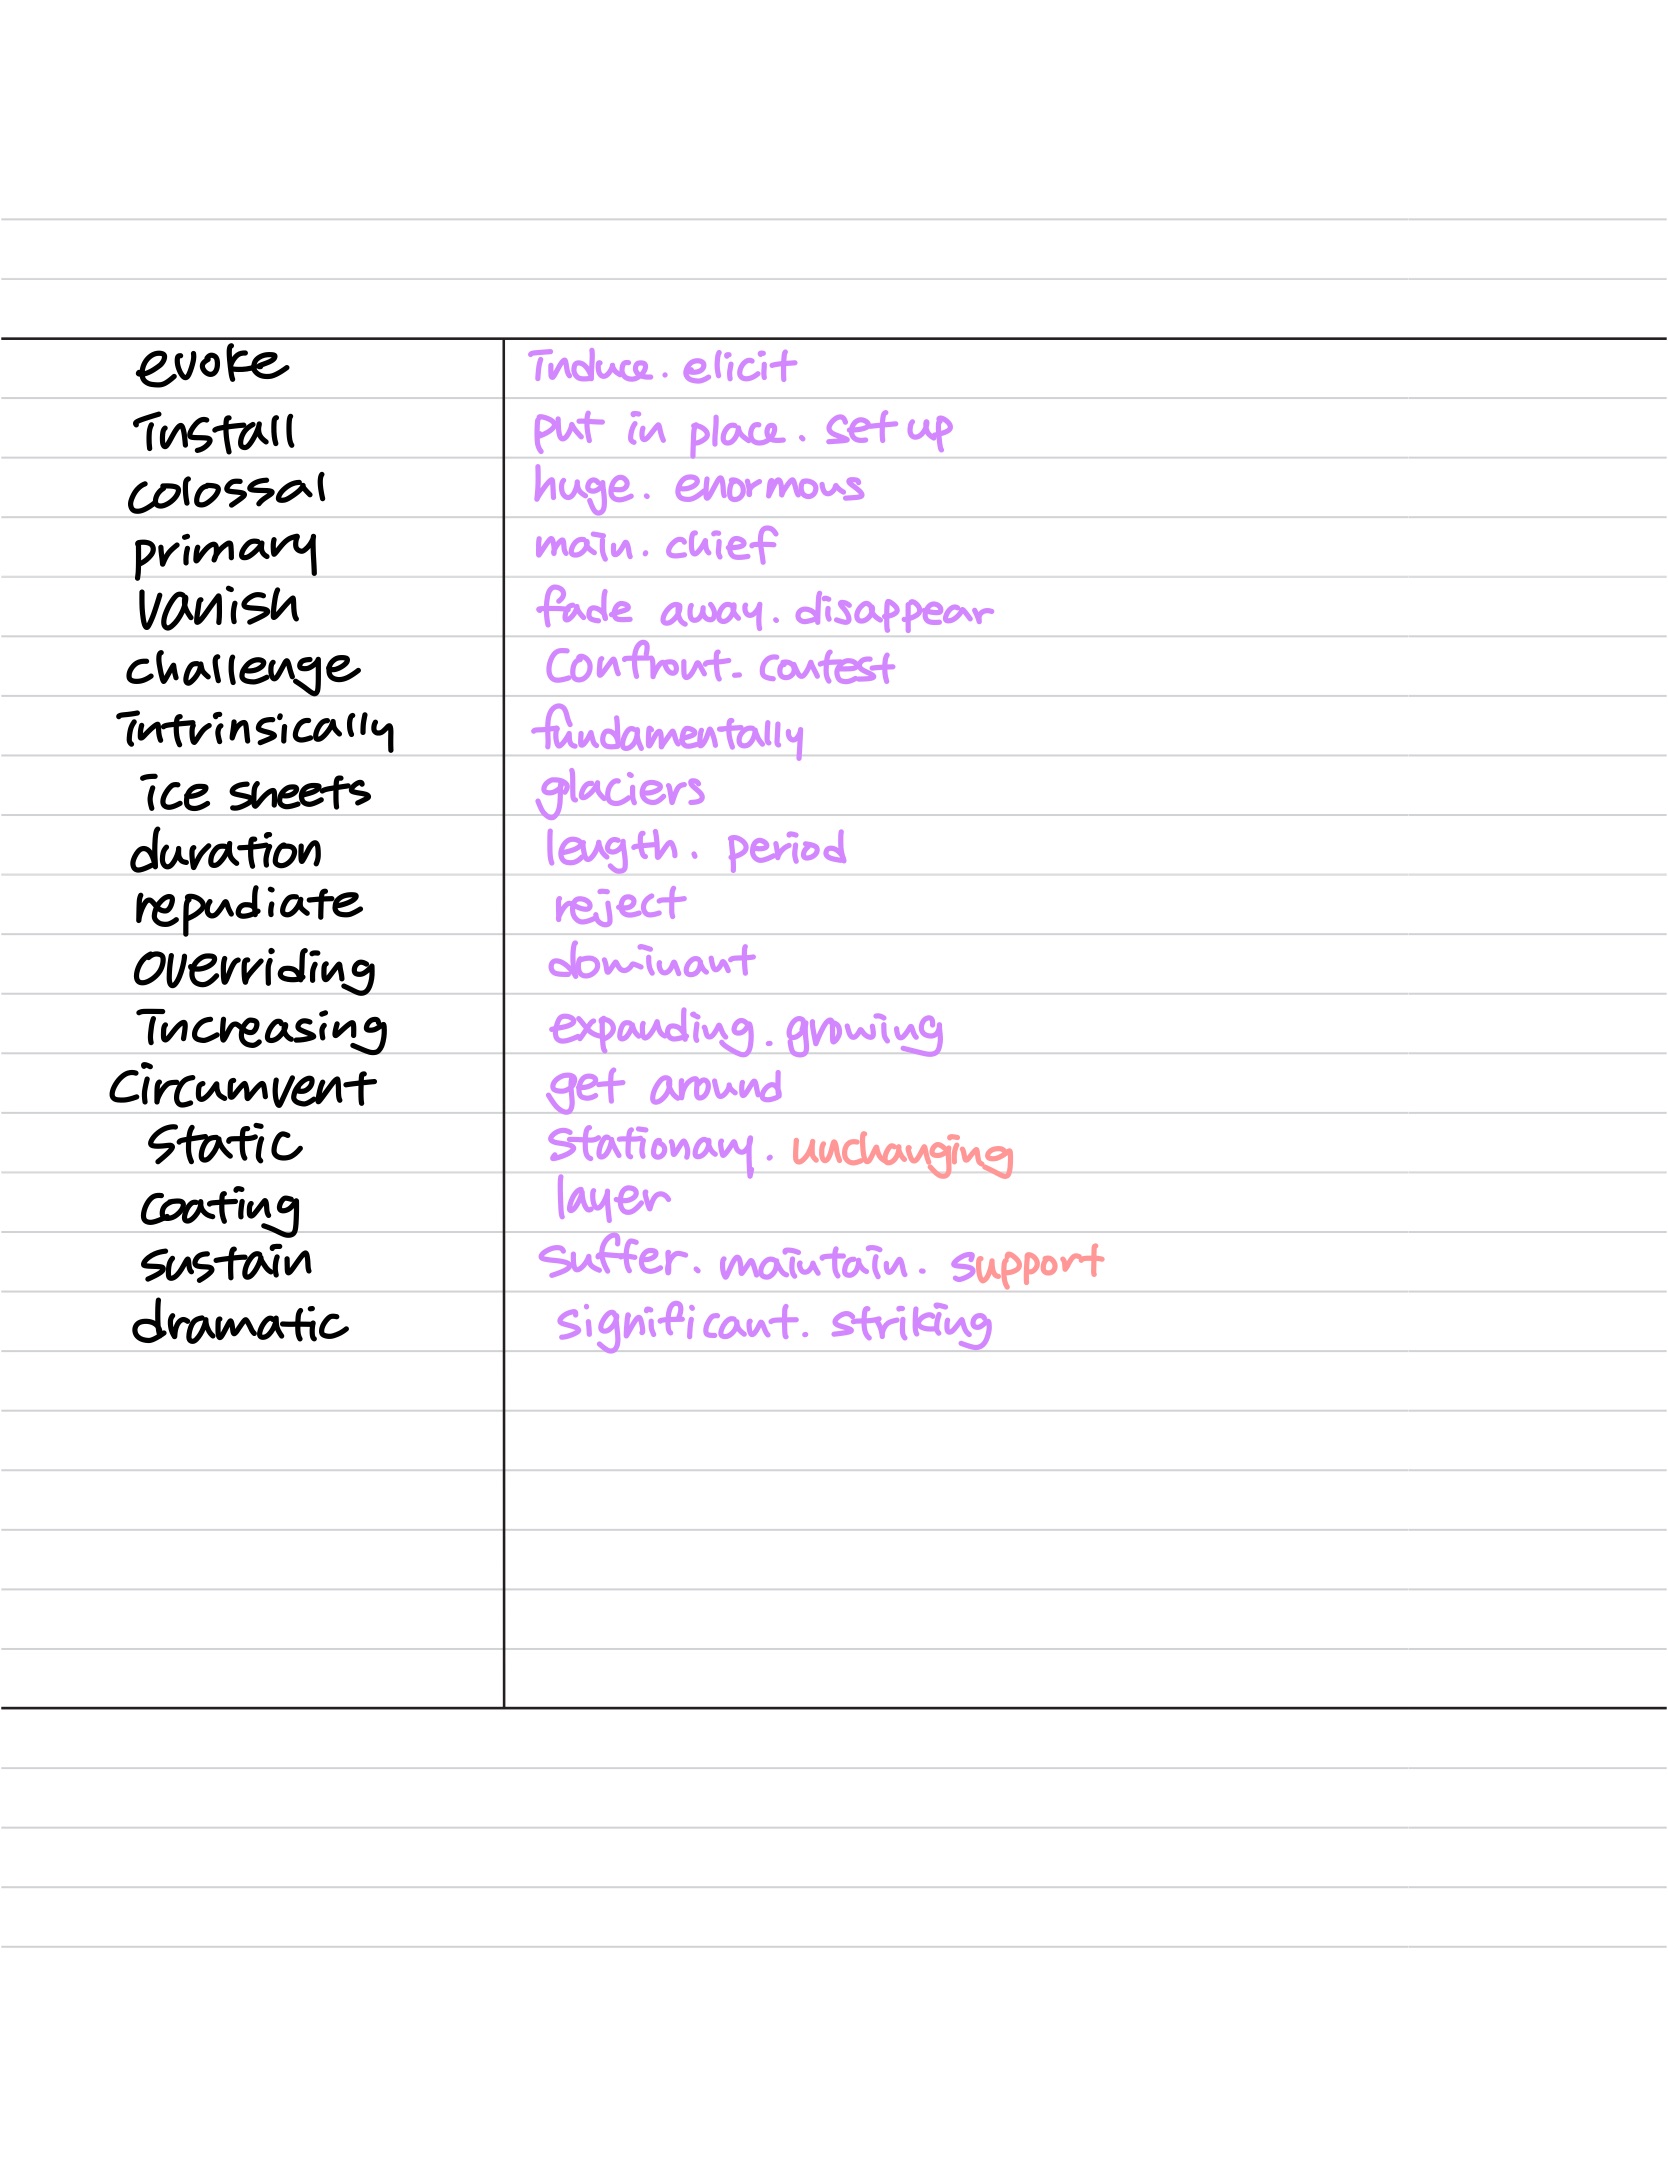 evoke induce. elicit
install put in place. set up
colossal huge. enormous
primary main. chief
vanish fade away. disappear
challenge confront. contest
intrinsically fundamentally
ice sheets glaciers
duration length. period
repudiate reject
overriding dominant
increasing expanding. growing
circumvent get around
static stationary. unchanging
coating layer
sustain suffer. maintain. support
dramatic significant. striking